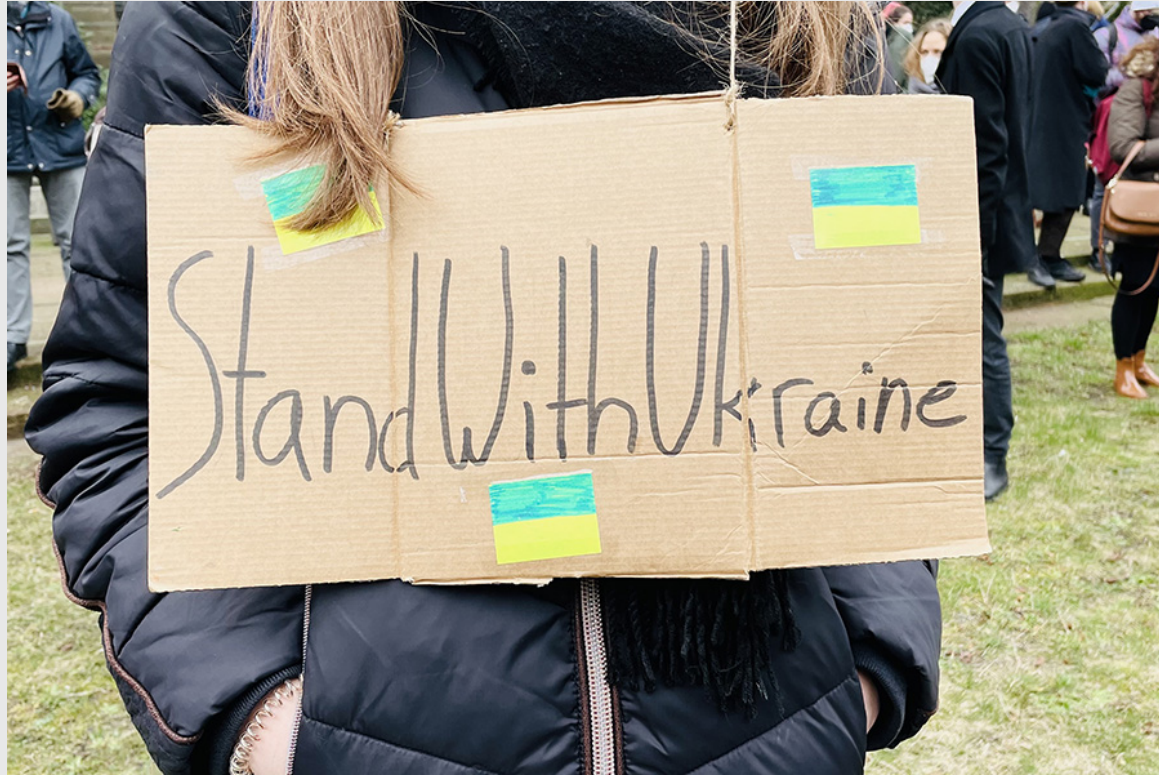 Stand With Ukraine